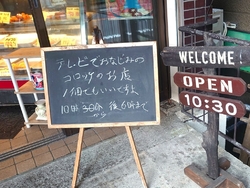 テレビでおなじみの
コロッケのお店
1個でもいいですよ
10時30分 後6時まで
から
WELCOME
OPEN
10:30